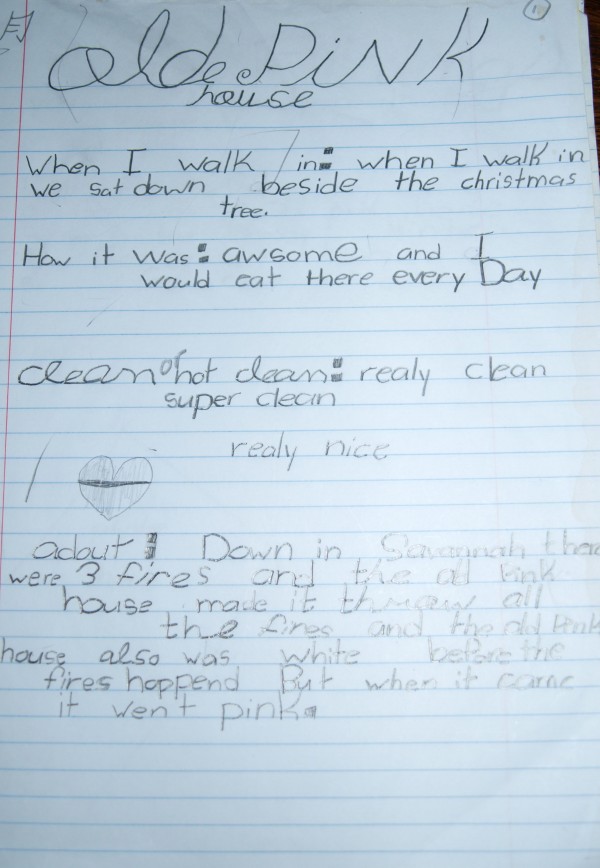 1
olde PiNK
house
When I walk in: when I walk in
we sat down beside the christmas
tree.
How it was: awsome and I
would eat there every Day
clean or not clean: realy clean
super clean
realy nice
adout: Down in Savannah ther
were 3 fires and the old Pink
house made it throw all
the fires and the old Pink
house also was white before the
fires hoppend But when it came
it went pink.